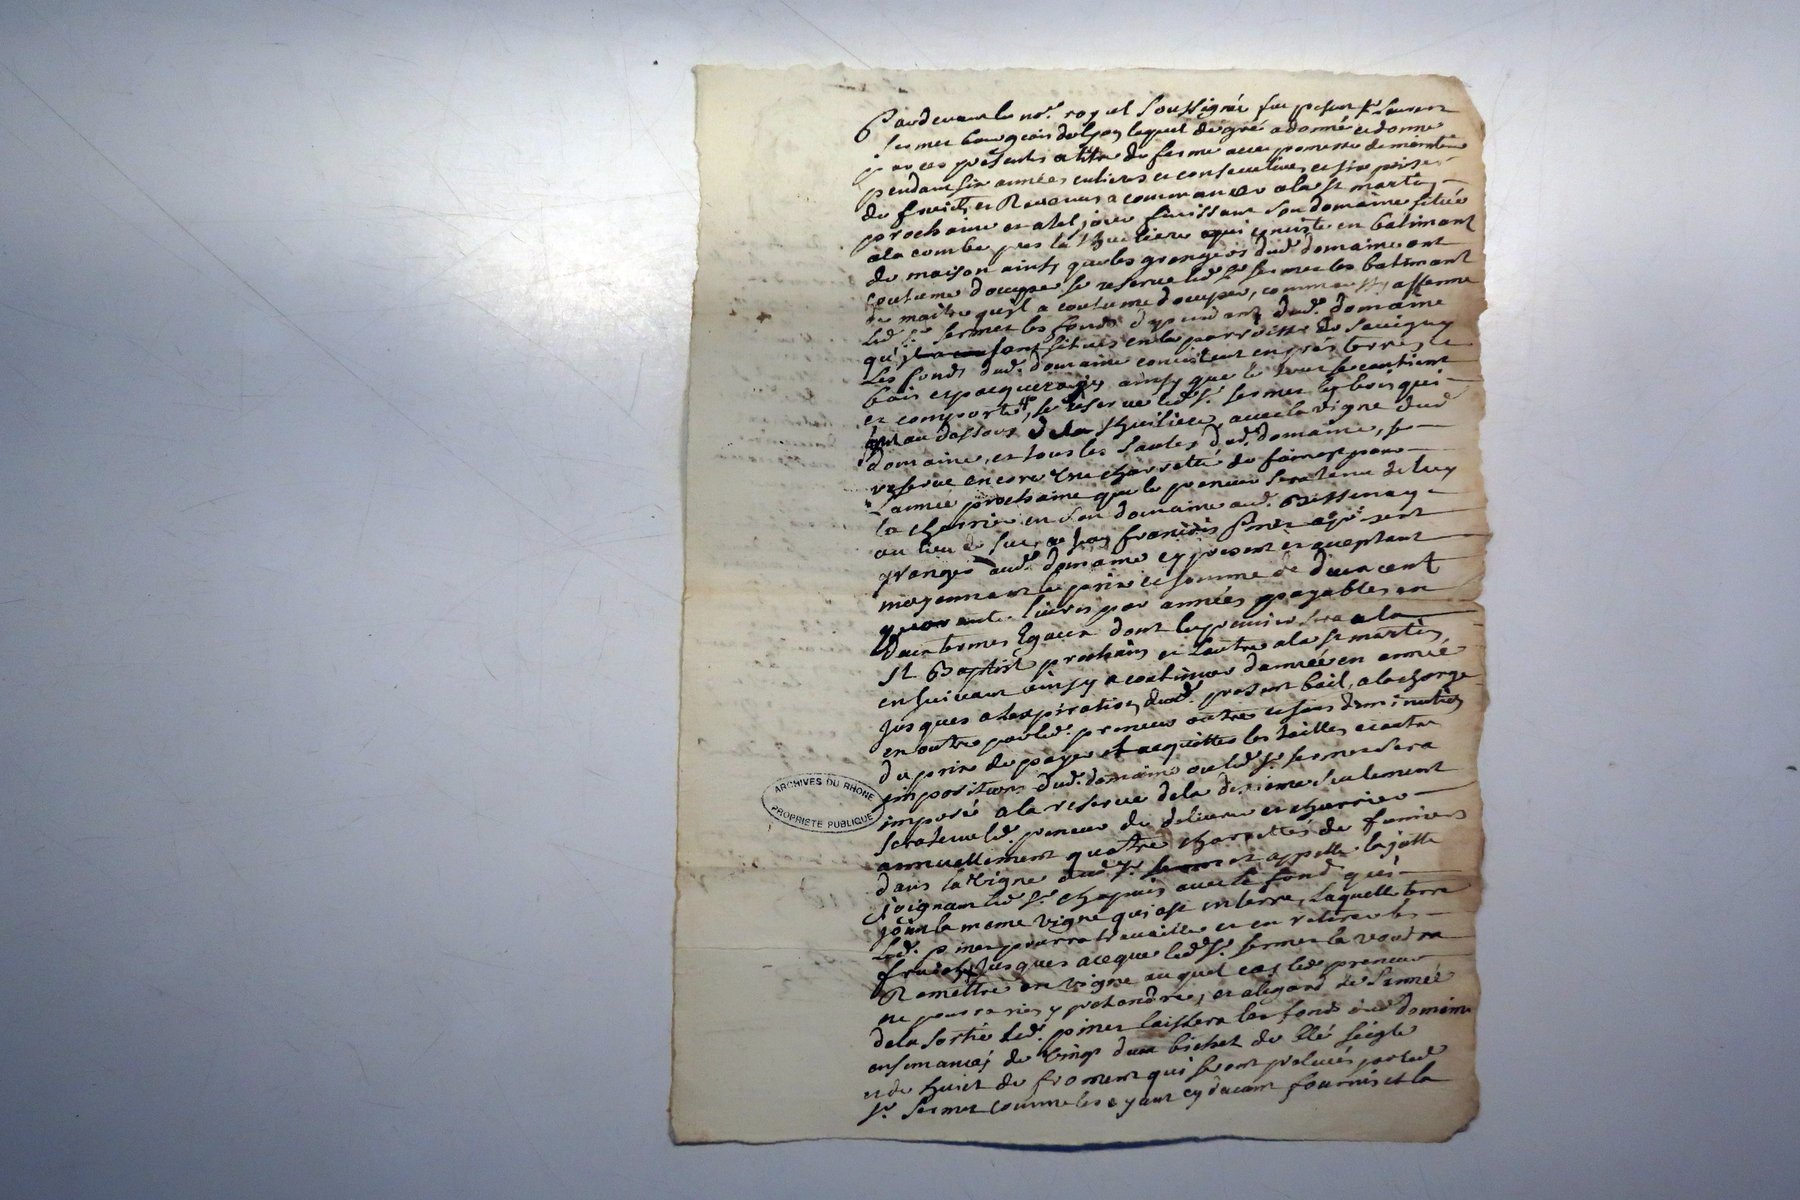 Pardevant le no.re royal soussigné fut present Sr
bourgeois de Lyon lequel de gré a donné et donne
par ces presentes a titre de ferme avec promesse de maintenue
pendant six années entieres et consecutives et six prises
de fruits et Revenus a commancer a la st martin
prochaine et a tel jour finissant son domaine situé
a la combe pres la Thuiliere qui consiste en batimant
de maison ainsy que les grangers dud. domaine ont
coutume d'occuper se reserve led. Sr. sermet les batimant
de maitre qu'il a coutume d'occuper, comme afferme
Led. Sr. sermet les fonds dependant dud. domaine
qui sont situés en la parroisse de Savigny
Les fonds dud. domaine consistent en prés terres
bois et pacquerages ainsy que le tout se contient
et comporte, se reserve led. Sr. sermet les bois qui
sont au dessous de la thuiliere, avec la vigne dud
domaine, et tous les saules dud. domaine, se
reserve encore une charretée de foin pour
l'année prochaine que le preneur sera tenu de luy
charrier en son domaine aud. Bessenay
au lieu de a françois pinet
granger aud. domaine cy present et acceptant
moyennant le prix et somme de deux cent
quarante livres par années payables en
deux termes Egaux dont le premier sera a la
St Baptiste prochain et l'autre a la st martin
en suivant ainsy a continuer d'année en année
jusques a l'expiration dud. present bail, a la charge
en outre par led. preneur outre et sans diminution
du prix de payer et acquitter les tailles et autre
impositions dud. domaine ou led. Sr. sermet sera
imposé a la reserve de la dixieme seulement
sera tenu led. preneur de delivrer et charrier
annuellement quatre charretées de fumiers
dans la vigne dud. Sr. appellé la jotte
joignant led. Sr. chapuis avec le fond qui
joint la meme vigne qui est en terre, Laquelle terre
Led. pinet pourra travailler et en retirer les
fruits jusques a ce que led. Sr. sermet la voudra
Remettre en vigne auquel cas led. preneur
ne pourra rien y pretendre, et a l'egard de l'année
de la sortie led. pinet laissera les fonds dud domaine
ensemancés de vingt deux bichet de blé seigle
et de huit de froment qui seront prelevés par led
Sr. sermet comme les ayant cy devant fournis et la
ARCHIVES DU RHONE
PROPRIETE PUBLIQUE